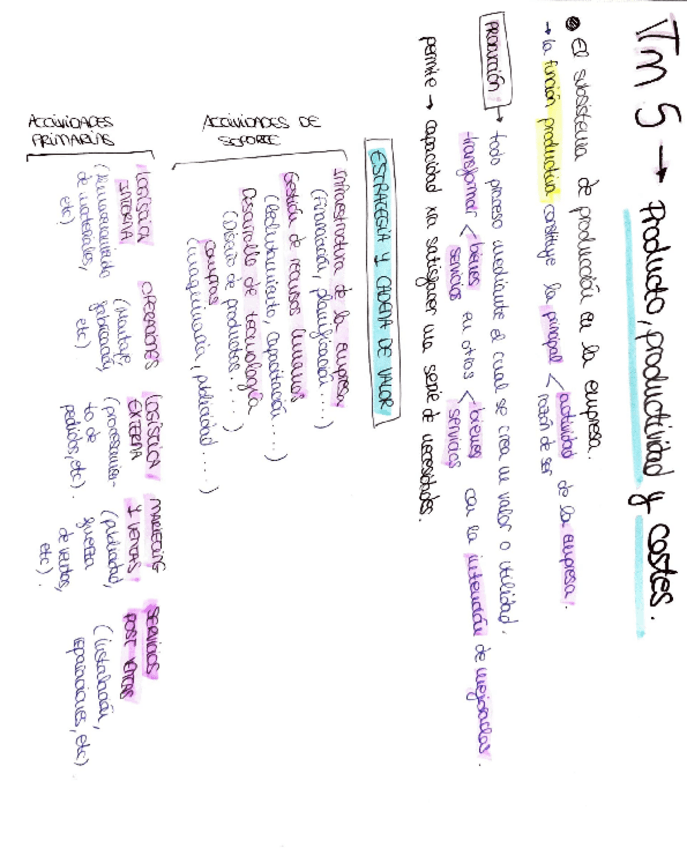 Tm 5 → Producto, productividad y costes.
El subsistema de producción en la empresa.
→ la función productiva constituye la principal < actividad de la empresa.
razón de ser
PRODUCCIÓN → todo proceso mediante el cual se crea un valor o utilidad.
transformar < bienes en otros < bienes con la intención de mejorarlos.
servicios servicios
permite → capacidad xra satisfacer una serie de necesidades.
ESTRATEGIA Y CADENA DE VALOR
ACTIVIDADES DE
SOPORTE
Infraestructura de la empresa
(Financiación, planificación....)
Gestión de recursos humanos
(Reclutamiento, capacitación....)
Desarrollo de tecnología
(Diseño de productos.....)
compras
(maquinaria, publicidad.....)
ACTIVIDADES
PRIMARIAS
LOGÍSTICA
INTERNA
(Almacenamiento
de materiales,
etc)
OPERACIONES
(Montaje,
fabricación,
etc)
LOGÍSTICA
EXTERNA
(procesamien-
to de
pedidos, etc).
MARKETING
Y VENTAS
(publicidad,
fuerza
de ventas,
etc).
SERVICIOS
POST VENTAS
(instalación,
reparaciones, etc)